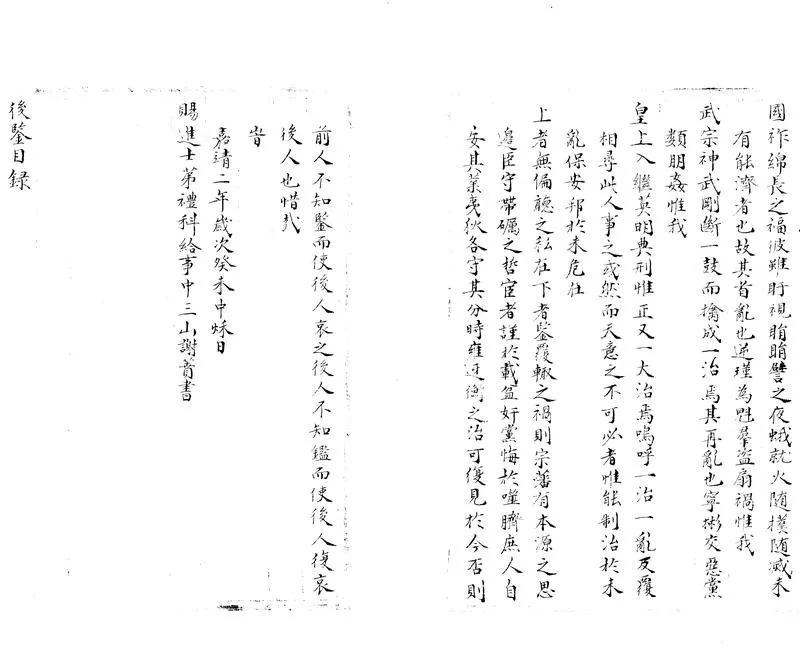 國祚綿長之福彼雖盱視睊睊譬之夜蛾就火隨撲隨滅未
有能濟者也故其首亂也逆瑾為魁羣盜扇禍惟我
武宗神武剛斷一鼓而擒成一治焉其再亂也寧彬交惡黨
類朋姦惟我
皇上入繼英明典刑惟正又一大治焉嗚呼一治一亂反覆
相尋此人事之或然而天意之不可必者惟能制治於未
亂保安邦於未危在
上者無偏聽之私在下者鑒覆轍之禍則宗藩有本源之思
邉臣守帶礪之哲宦者謹於載盆奸黨悔於噬臍庶人自
安其業夷狄各守其分時雍迓衡之治可復見於今否則
前人不知鑒而使後人哀之後人不知鑑而使後人復哀
後人也惜哉
旹
嘉靖二年歲次癸未中秌日
賜進士第禮科給事中三山謝蕡書
後鑒目録